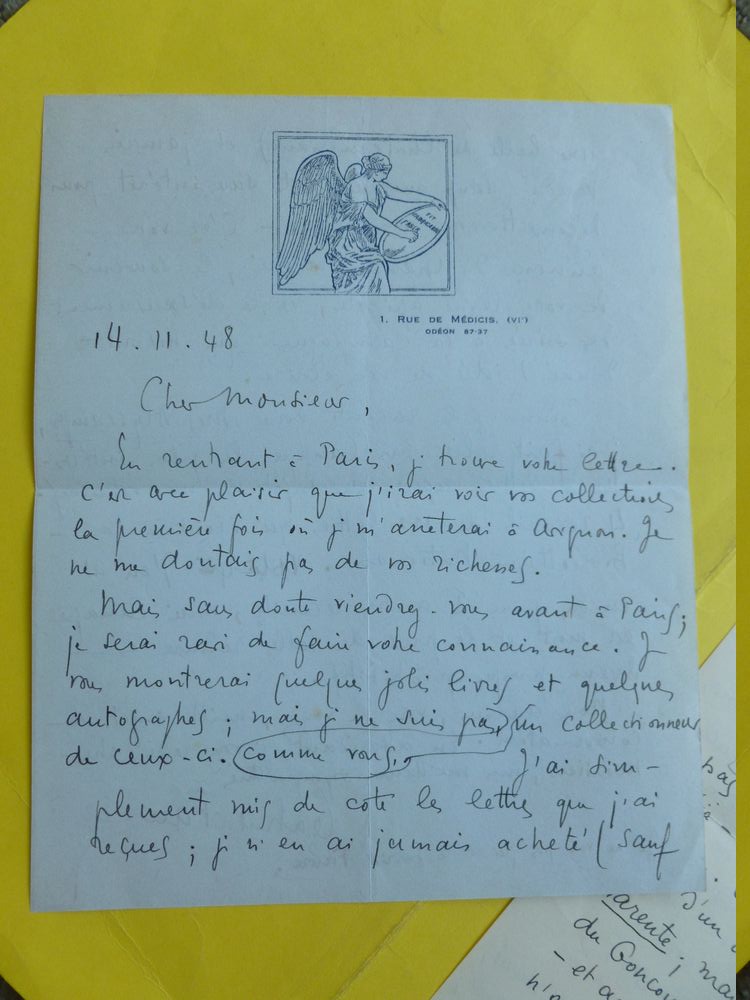 1. RUE DE MÉDICIS. (VIᵉ)
ODÉON 87-37
14. 11. 48
Cher Monsieur,
En rentrant à Paris, je trouve votre lettre.
C'est avec plaisir que j'irai voir vos collections
la première fois où je m'arrêterai à Avignon. Je
ne me doutais pas de vos richesses.
Mais sans doute viendrez-vous avant à Paris;
je serai ravi de faire votre connaissance. Je
vous montrerai quelques jolis livres et quelques
autographes; mais je ne suis pas, un collectionneur
de ceux-ci. comme vous,
J'ai sim-
plement mis de côté les lettres que j'ai
reçues; je n'en ai jamais acheté (sauf
pas
d'un
arente; ma
du Goncou
- et a